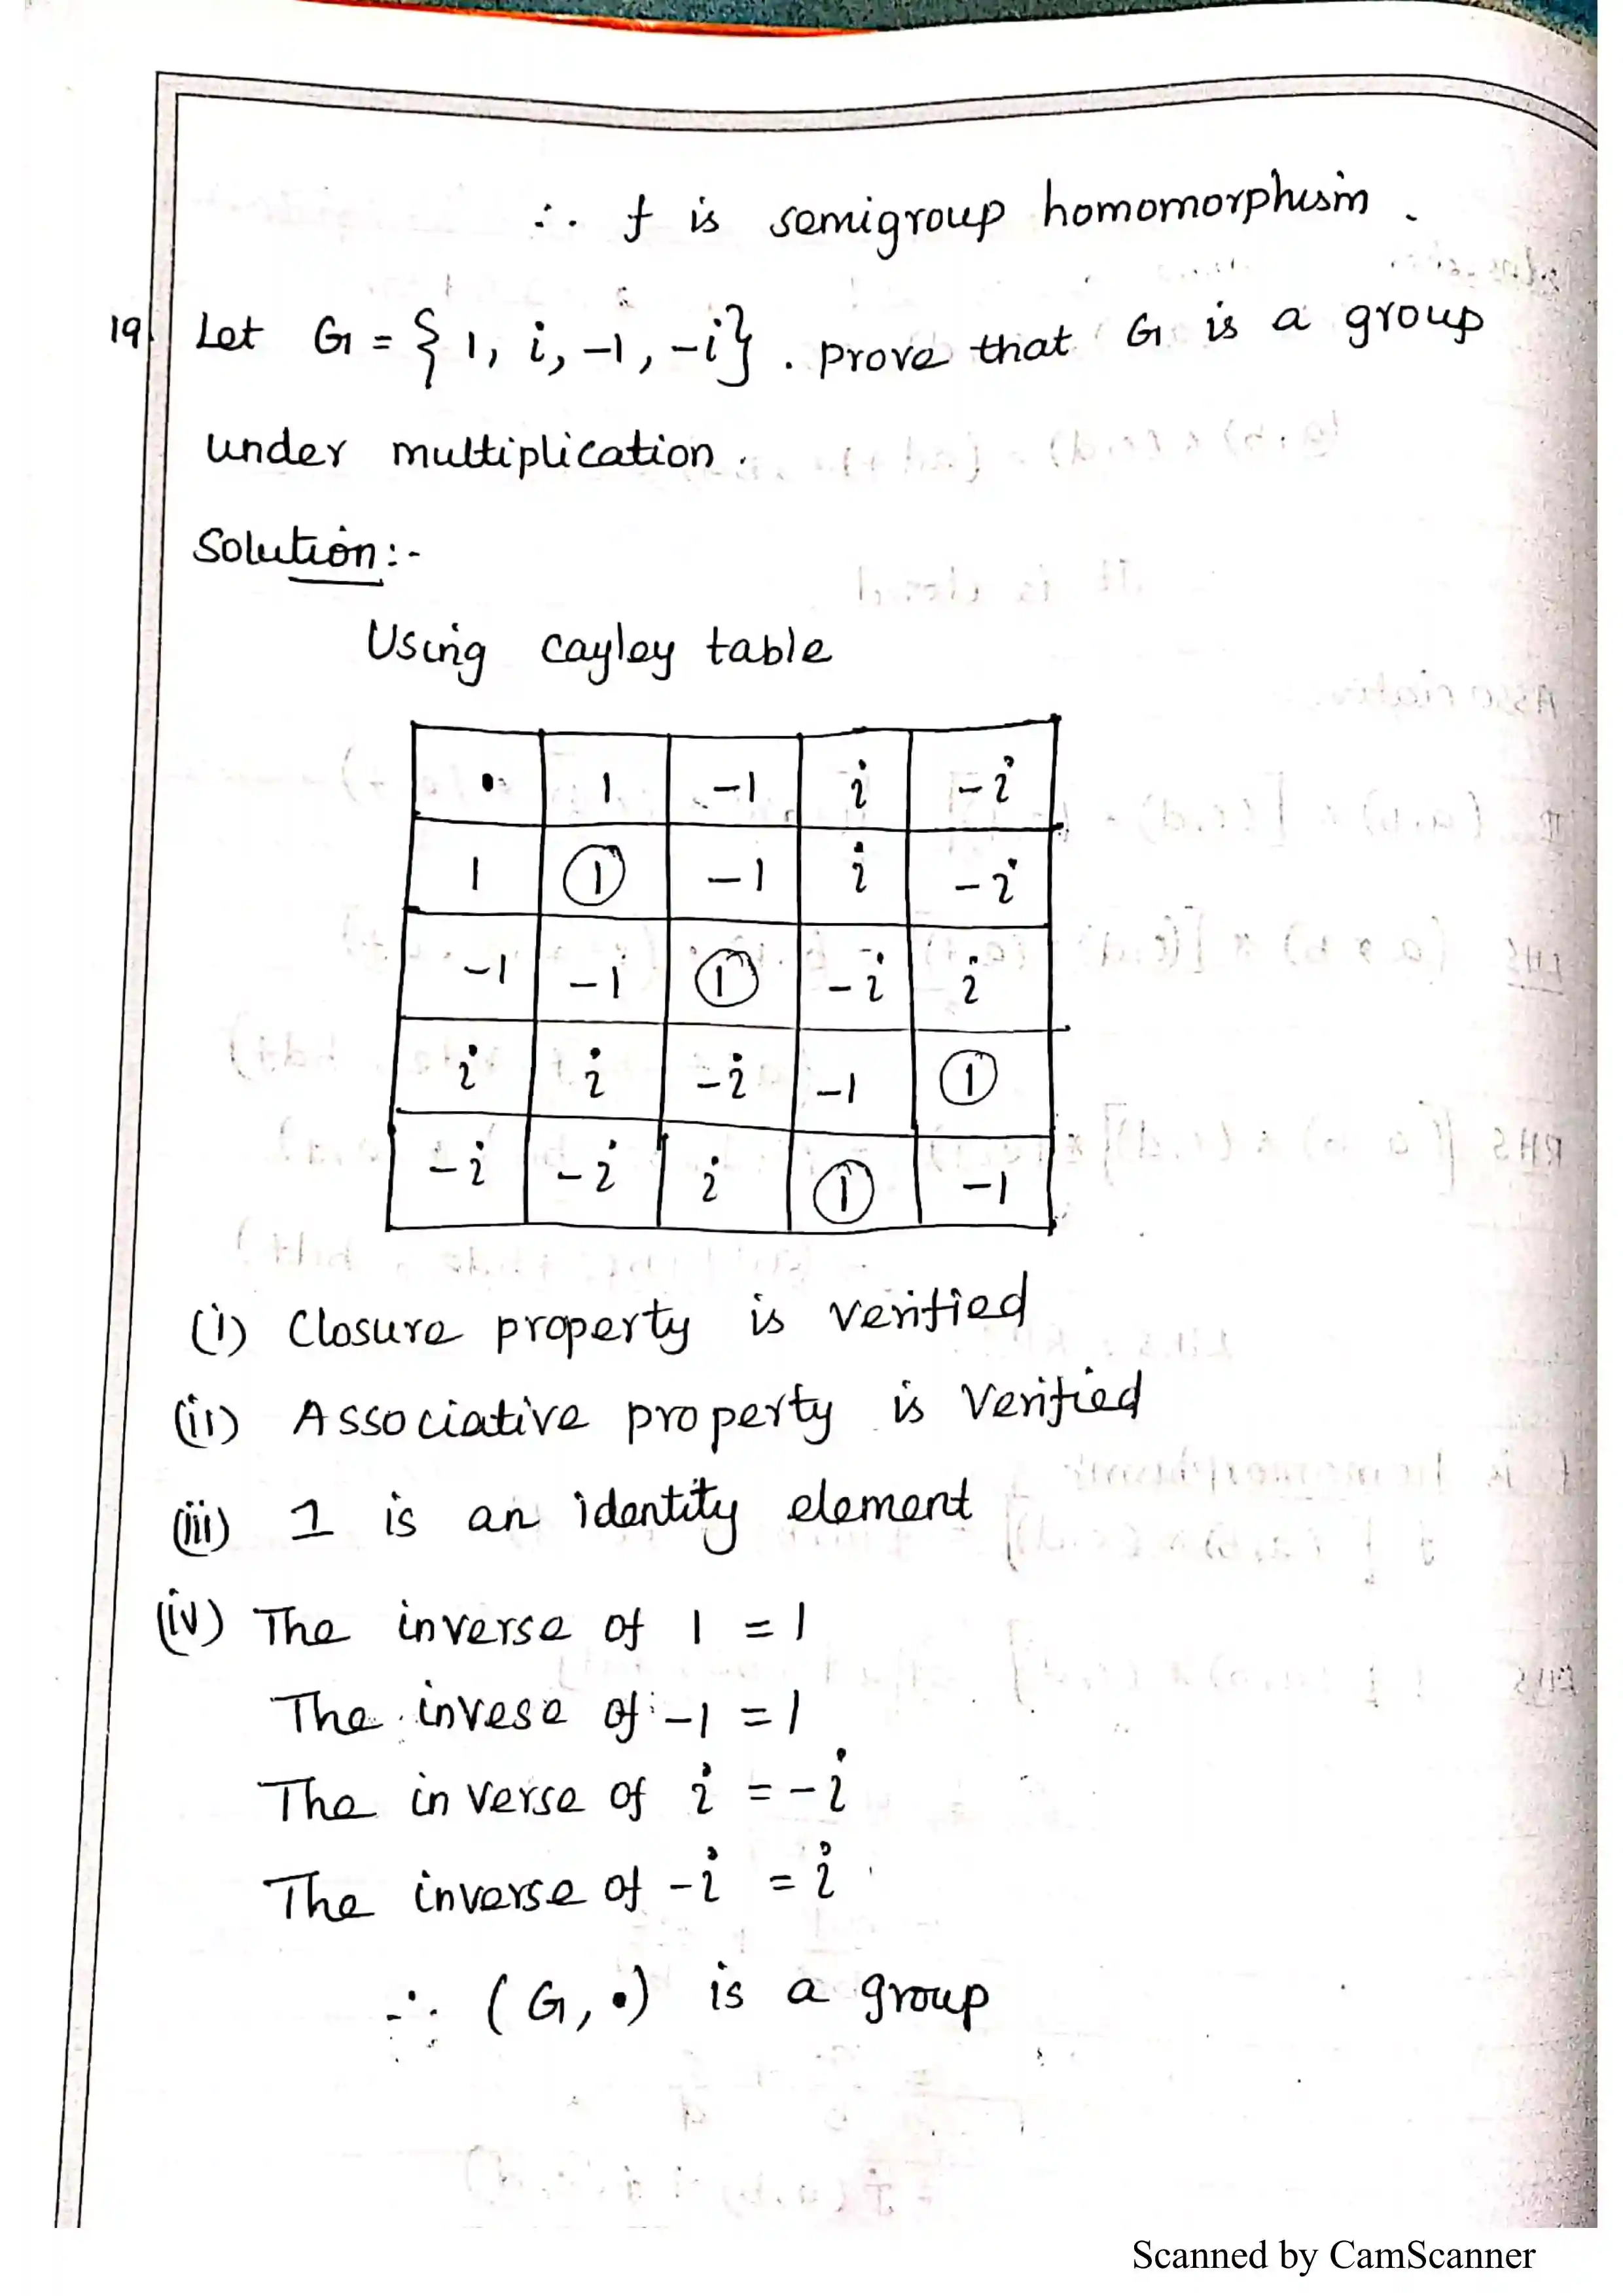 ∴ f is semigroup homomorphism.
19. Let G = { 1, i, -1, -i}. prove that G is a group
under multiplication.
Solution:-
Using cayley table
• 1 -1 i -i
1 1 -1 i -i
-1 -1 1 -i i
i i -i -1 1
-i -i i 1 -1
(i) Closure property is verified
(ii) Associative property is Verified
(iii) 1 is an identity element
(iv) The inverse of 1 = 1
The invese of -1 = 1
The inverse of i = -i
The inverse of -i = i
∴ (G, •) is a group
Scanned by CamScanner